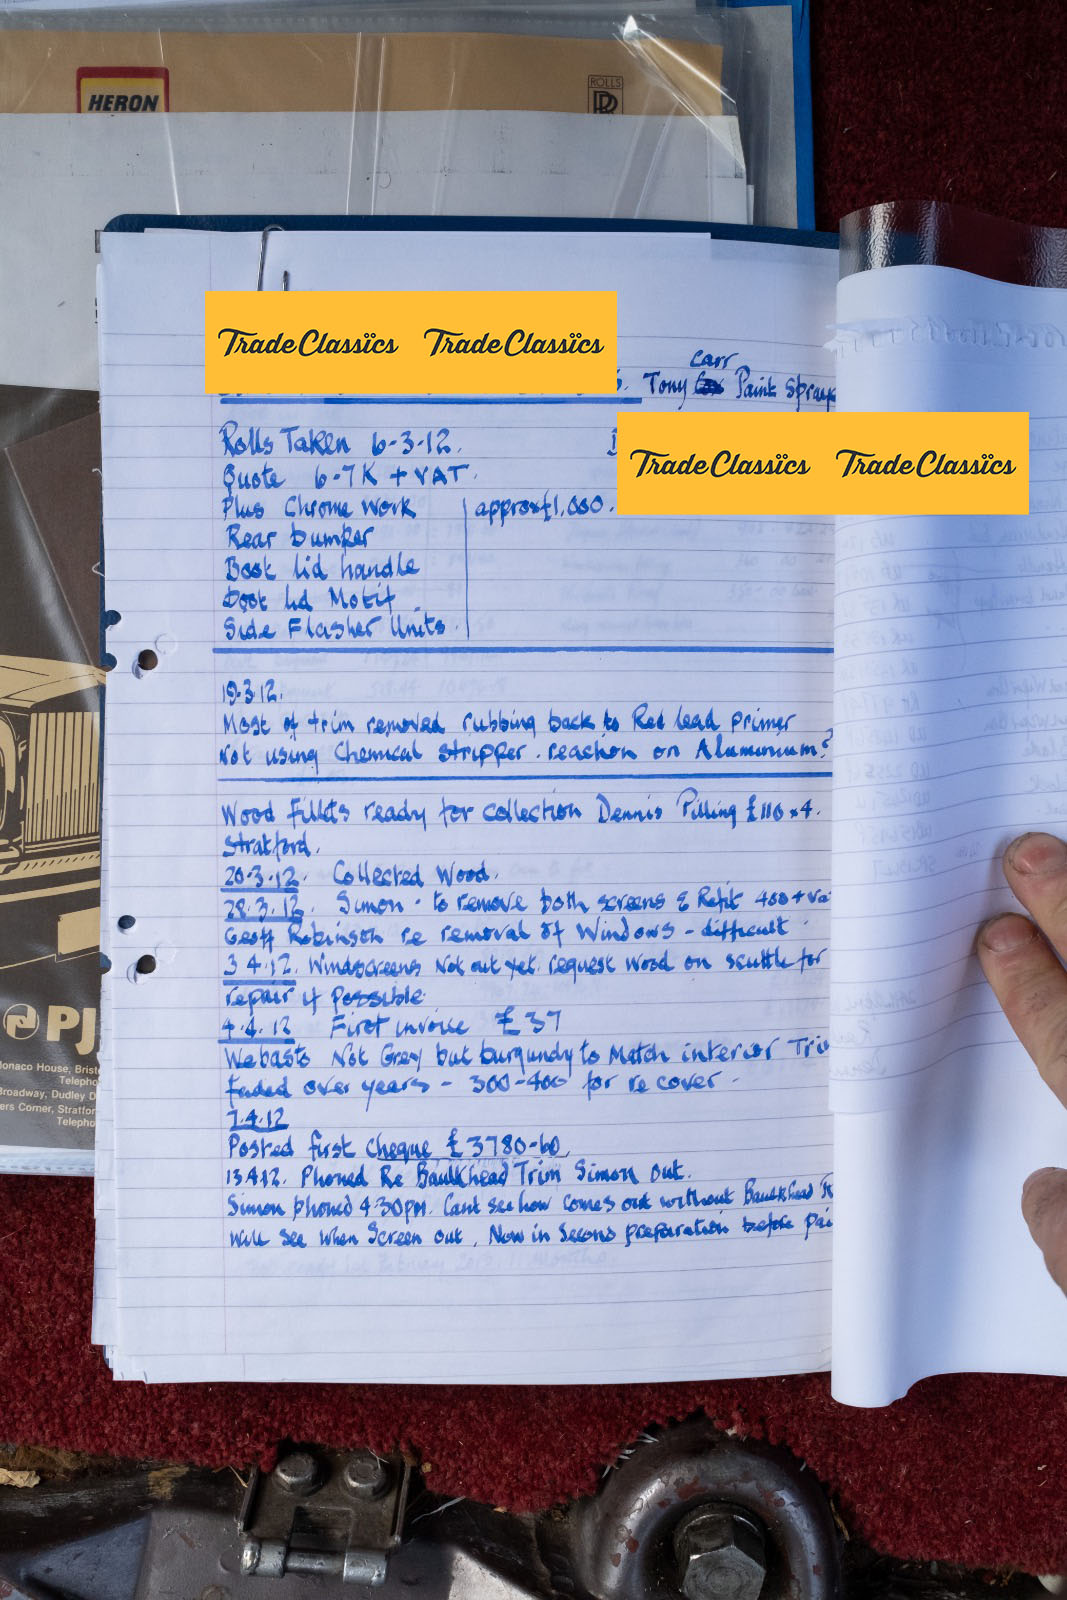 HERON
ROLLS
RR
Trade Classics Trade Classics
Carr
Tony Paint Spray
Trade Classics Trade Classics
Rolls Taken 6-3-12.
Quote 6-7K + VAT.
Plus Chrome Work approx £1,000.
Rear bumper
Boot lid handle
Boot lid Motif
Side Flasher Units.
19.3.12.
Most of trim removed rubbing back to Red lead primer
Not using Chemical stripper. reaction on Aluminium?
Wood Fillets ready for collection Dennis Pilling £110 x 4.
Stratford.
20.3.12. Collected Wood.
28.3.12. Simon - to remove both screens & Refit 400 + va
Geoff Robinson re removal of Windows - difficult
3.4.12. Windscreens Not out yet. request wood on scuttle for
repair if possible
4.4.12 First invoice £37
Webasto Not Grey but burgundy to Match interior Tri
faded over years - 300-400 for re cover -
7.4.12
Posted first cheque £3780-60.
13.4.12. Phoned Re Baulkhead Trim Simon out.
Simon phoned 4.30pm. Cant see how comes out without Baulkhead
will see when Screen out. Now in Second preparation before pai
PJ
onaco House, Brist
Telepho
Broadway, Dudley D
ers Corner, Stratfor
Telepho